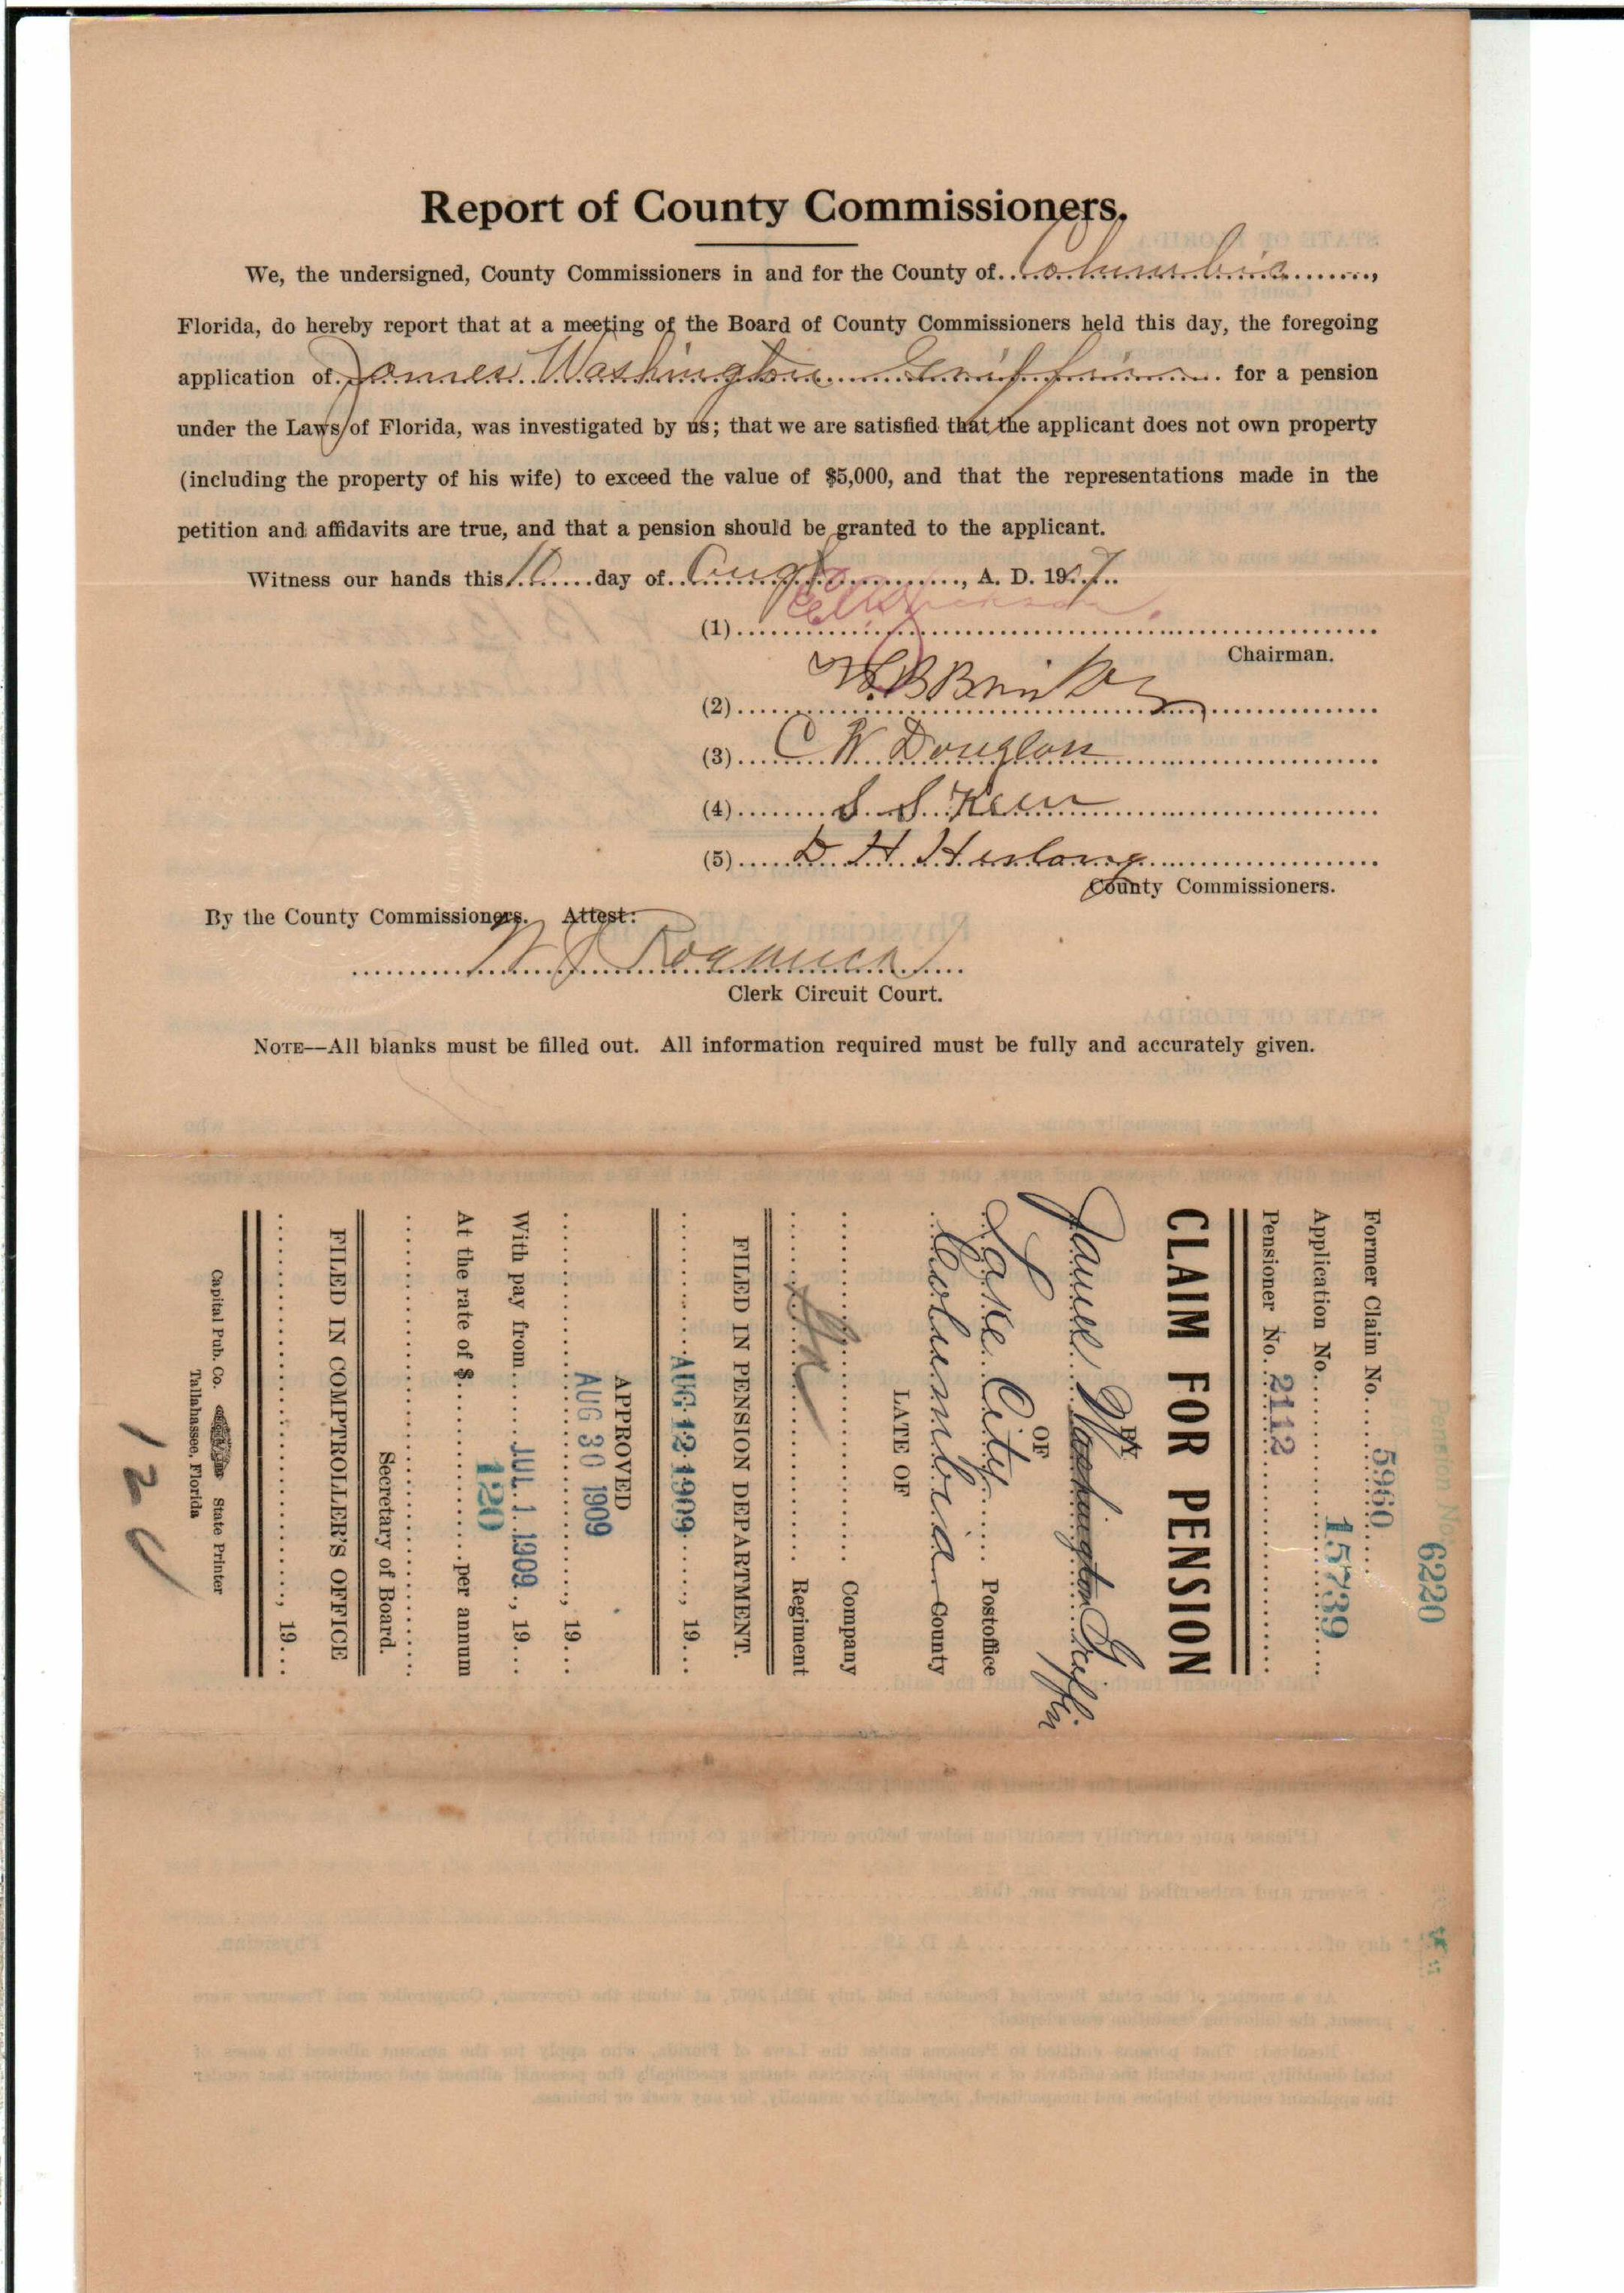 Report of County Commissioners.
We, the undersigned, County Commissioners in and for the County of Columbia,
Florida, do hereby report that at a meeting of the Board of County Commissioners held this day, the foregoing
application of James Washington Griffin for a pension
under the Laws of Florida, was investigated by us; that we are satisfied that the applicant does not own property
(including the property of his wife) to exceed the value of $5,000, and that the representations made in the
petition and affidavits are true, and that a pension should be granted to the applicant.
Witness our hands this 10 day of Augst, A. D. 19
(1)
Chairman.
(2)
(3) C W Douglass
(4) S. S.
(5) D H Herlong
County Commissioners.
By the County Commissioners. Attest:
Clerk Circuit Court.
NOTE—All blanks must be filled out. All information required must be fully and accurately given.
Pension No. 6220
Former Claim No. 5960
Application No. 15739
Pensioner No. 2112
CLAIM FOR PENSION
BY
James Washington Griffin
OF
Lake City Postoffice
Columbia County
LATE OF
Company
Regiment
FILED IN PENSION DEPARTMENT.
AUG 12 1909, 19
APPROVED
AUG 30 1909, 19
With pay from JUL 1 1909, 19
At the rate of $ 120 per annum
Secretary of Board.
FILED IN COMPTROLLER'S OFFICE
, 19
Capital Pub. Co. State Printer
Tallahassee, Florida
120